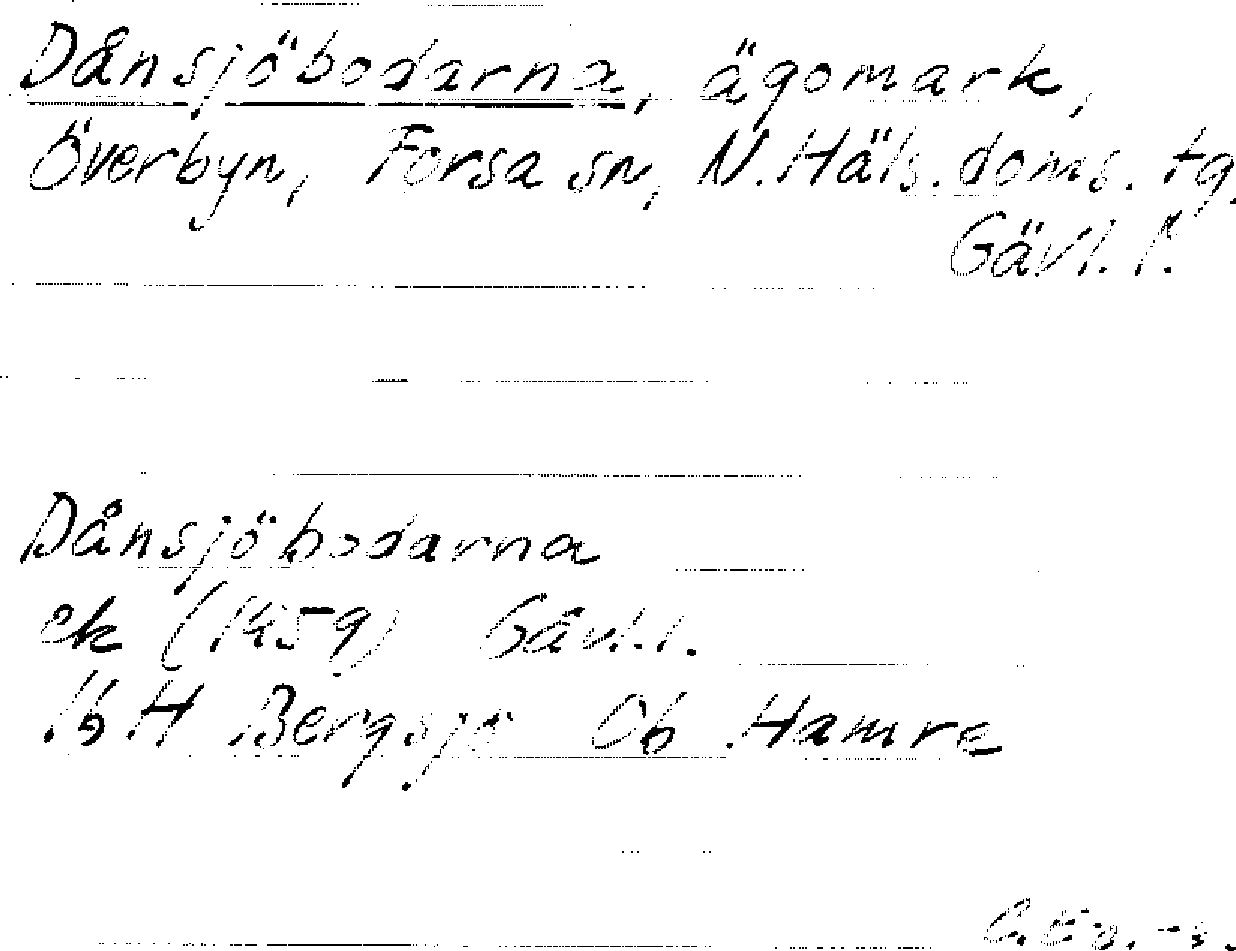 Dånsjöbodarna, ägomark,
Överbyn, Forsa sn, N. Häls. doms. tg.
Gävl. l.
Dånsjöbodarna
ek (1959) Gävl. l.
16 H Bergsjö Ob Hamre